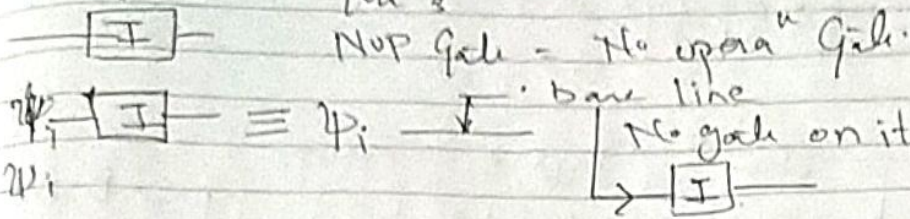 I NOP Gate - No operaⁿ Gate.
ψi I ≡ ψi bare line
No gate on it
ψi I